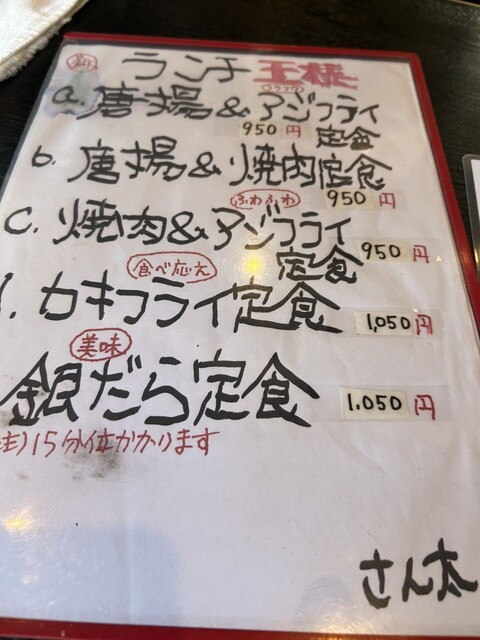 新 ランチ 王様
a. 唐揚 & アジフライ
950円 定食
b. 唐揚 & 焼肉定食
ふわふわ 950円
c. 焼肉 & アジフライ
定食 950円
食べ応え
カキフライ定食 1,050円
美味
銀だら定食 1.050円
注)15分位かかります
さん太